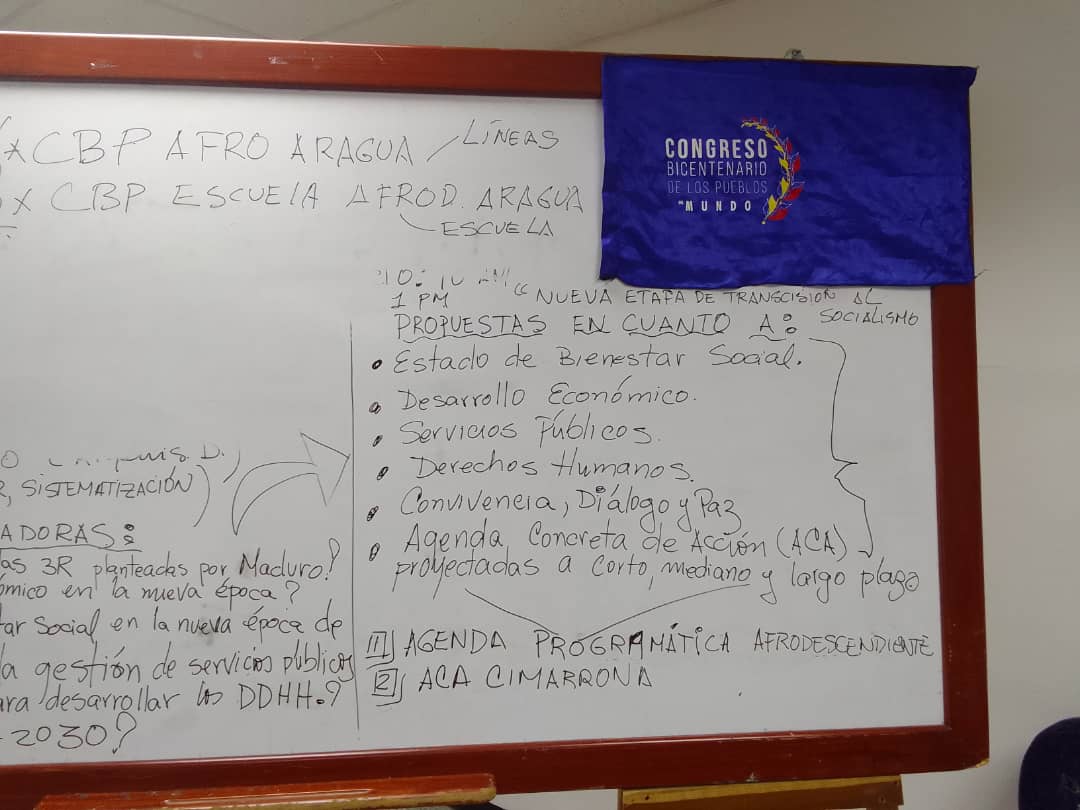 *CBP AFRO ARAGUA / LÍNEAS
X CBP ESCUELA AFROD. ARAGUA
ESCUELA
CONGRESO
BICENTENARIO
DE LOS PUEBLOS
DEL MUNDO
1 PM "NUEVA ETAPA DE TRANSCISIÓN AL
SOCIALISMO
PROPUESTAS EN CUANTO A:
• Estado de Bienestar Social.
• Desarrollo Económico.
• Servicios Públicos.
• Derechos Humanos.
• Convivencia, Diálogo y Paz
• Agenda Concreta de Acción (ACA)
proyectadas a corto, mediano y largo plazo
1] AGENDA PROGRAMÁTICA AFRODESCENDIENTE
2] ACA CIMARRONA
D.)
, SISTEMATIZACIÓN)
ADORAS:
as 3R planteadas por Maduro?
ómico en la nueva época?
tar Social en la nueva época de
a gestión de servicios públicos
ara desarrollar los DDHH.?
- 2030?